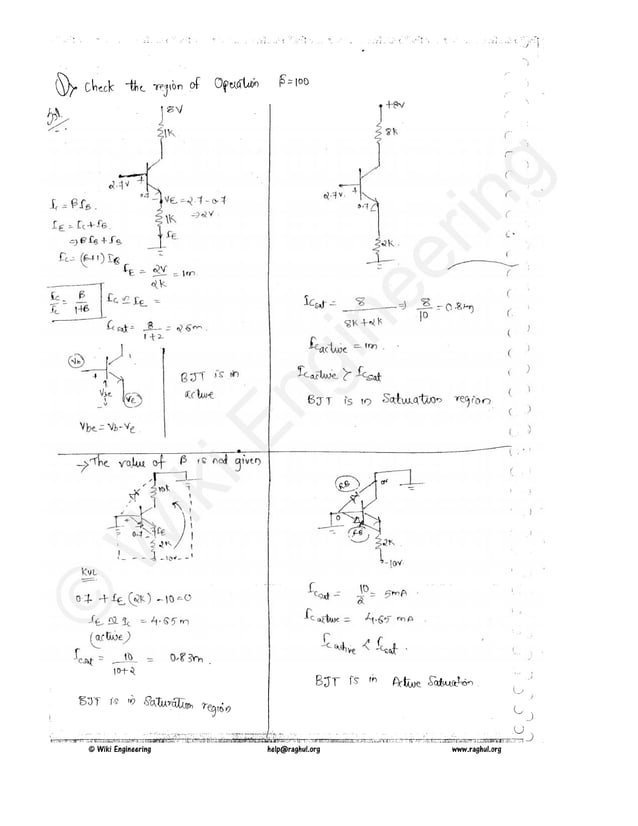 ① Check the region of Operation β=100
Sol
8V
1K
2.7V
+
0.7
VE = 2.7-0.7
⇒ 2V
1K
IE
Ic = βIB.
IE = Ic + IB
⇒ βIB + IB
Ic = (β+1) IB
IE = 2V/2K = 1m
Ic/Ic = β/1+β
Ic ≃ IE =
Icsat = 8/1+2 = 26m.
Vb
+
Vbe
-
Ve
Vbe = Vb - Ve
BJT is in
active
+8V
8K
2.7V
+
0.7
2K
Icsat = 8/8K+2K ⇒ 8/10 = 0.8m
Icactive = 1m
Icactive > Icsat
BJT is in Saturation region
→ The value of β is not given
10K
+
0.7
IE
2K
-10V
KVL
0.7 + IE (2K) - 10 = 0
IE ≃ Ic = 4.65m
(active)
Icsat = 10/10+2 = 0.83m.
BJT is in Saturation region
RB
0V
0
RB
2K
-10V
Icsat = 10/2 = 5mA
Icactive = 4.65 mA
Icactive < Icsat.
BJT is in Active Saturation.
© Wiki Engineering
© Wiki Engineering
help@raghul.org
www.raghul.org